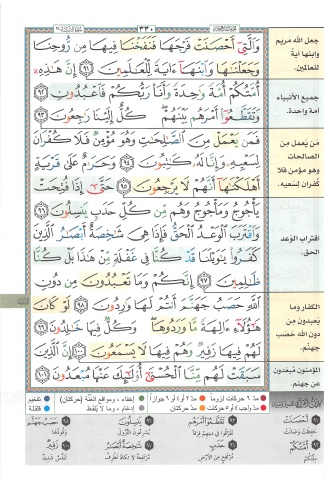 ٣٣٠
وَالَّتِي أَحْصَنَتْ فَرْجَهَا فَنَفَخْنَا فِيهَا مِن رُّوحِنَا
وَجَعَلْنَاهَا وَابْنَهَا آيَةً لِّلْعَالَمِينَ ٩١ إِنَّ هَٰذِهِ
أُمَّتُكُمْ أُمَّةً وَاحِدَةً وَأَنَا رَبُّكُمْ فَاعْبُدُونِ ٩٢
وَتَقَطَّعُوا أَمْرَهُم بَيْنَهُمْ كُلٌّ إِلَيْنَا رَاجِعُونَ ٩٣
فَمَن يَعْمَلْ مِنَ الصَّالِحَاتِ وَهُوَ مُؤْمِنٌ فَلَا كُفْرَانَ
لِسَعْيِهِ وَإِنَّا لَهُ كَاتِبُونَ ٩٤ وَحَرَامٌ عَلَىٰ قَرْيَةٍ
أَهْلَكْنَاهَا أَنَّهُمْ لَا يَرْجِعُونَ ٩٥ حَتَّىٰ إِذَا فُتِحَتْ
يَأْجُوجُ وَمَأْجُوجُ وَهُم مِّن كُلِّ حَدَبٍ يَنسِلُونَ ٩٦
وَاقْتَرَبَ الْوَعْدُ الْحَقُّ فَإِذَا هِيَ شَاخِصَةٌ أَبْصَارُ الَّذِينَ
كَفَرُوا يَا وَيْلَنَا قَدْ كُنَّا فِي غَفْلَةٍ مِّنْ هَٰذَا بَلْ كُنَّا
ظَالِمِينَ ٩٧ إِنَّكُمْ وَمَا تَعْبُدُونَ مِن دُونِ
اللَّهِ حَصَبُ جَهَنَّمَ أَنتُمْ لَهَا وَارِدُونَ ٩٨ لَوْ كَانَ
هَٰؤُلَاءِ آلِهَةً مَّا وَرَدُوهَا وَكُلٌّ فِيهَا خَالِدُونَ ٩٩
لَهُمْ فِيهَا زَفِيرٌ وَهُمْ فِيهَا لَا يَسْمَعُونَ ١٠٠ إِنَّ الَّذِينَ
سَبَقَتْ لَهُم مِّنَّا الْحُسْنَىٰ أُولَٰئِكَ عَنْهَا مُبْعَدُونَ ١٠١
جعل الله مريم
وابنها آية
للعالمين.
جميع الأنبياء
أمة واحدة.
مَن يعمل من
الصالحات
وهو مؤمن فلا
كفران لسعيه.
اقتراب الوعد
الحق.
الكفار وما
يعبدون من
دون الله حصب
جهنم.
المؤمنون مُبعدون
عن جهنم.
مدّ ٦ حركات لزوماً
مدّ ٢ أو ٤ أو ٦ جوازاً
إخفاء، ومواقع الغُنَّة (حركتان)
تفخيم
مدّ واجب ٤ أو ٥ حركات
مدّ حركتان
إدغام، وما لا يُلفظ
قلقلة
أَحْصَنَتْ
أُمَّتُكُمْ
حَدَبٍ
يَنسِلُونَ
حَصَبُ جَهَنَّمَ
زَفِيرٌ